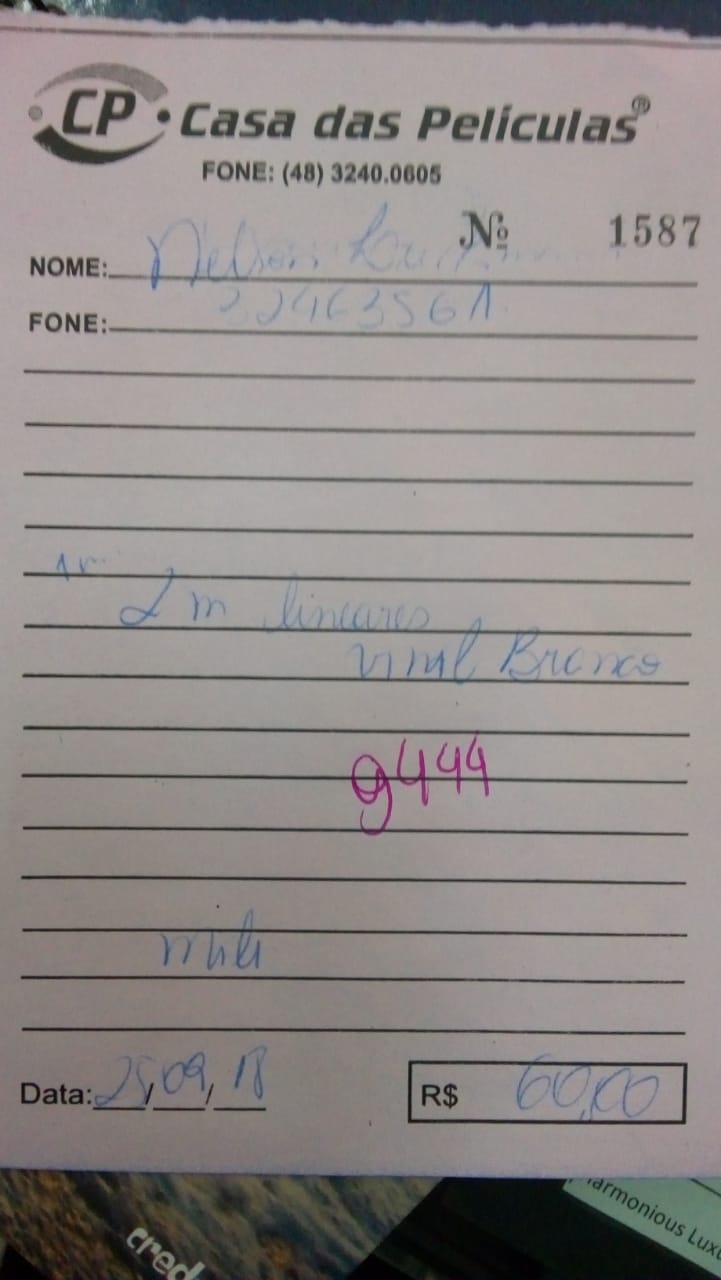 CP • Casa das Películas®
FONE: (48) 3240.0605
Nº 1587
NOME: Nelson
FONE: 32463561
2 m lineares
vinil Branco
9444
Data: 25/09/18
R$ 60,00
cred
armonious Luxu